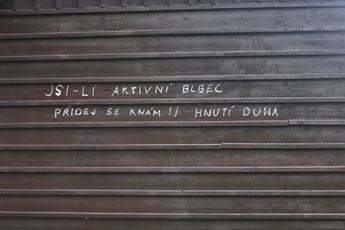 JSI-LI AKTIVNÍ BLBEC
PŘIDEJ SE KNÁM!! HNUTÍ DUHA